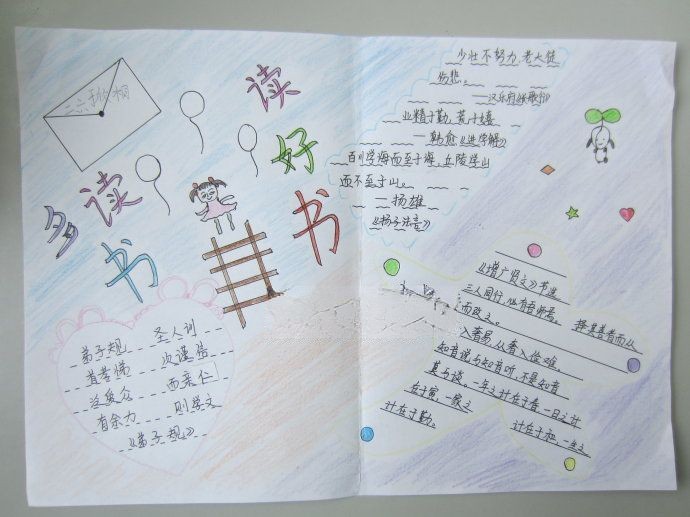 多读书
读好书
弟子规 圣人训
首孝悌 次谨信
泛爱众 而亲仁
有余力 则学文
《弟子规》
少壮不努力,老大徒
伤悲。
—汉乐府《长歌行》
业精于勤,荒于嬉
—韩愈《进学解》
百川学海而至于海,丘陵学山
而不至于山。
— 扬雄
《扬子法言》
《增广贤文》书选
三人同行,必有吾师焉。 择其善者而从
而改之。
入奢易,从奢入俭难。
知音说与知音听,不是知音
莫与谈。一年之计在于春一日之计
在于寅,一家之 计在于和,一生之
计在于勤。